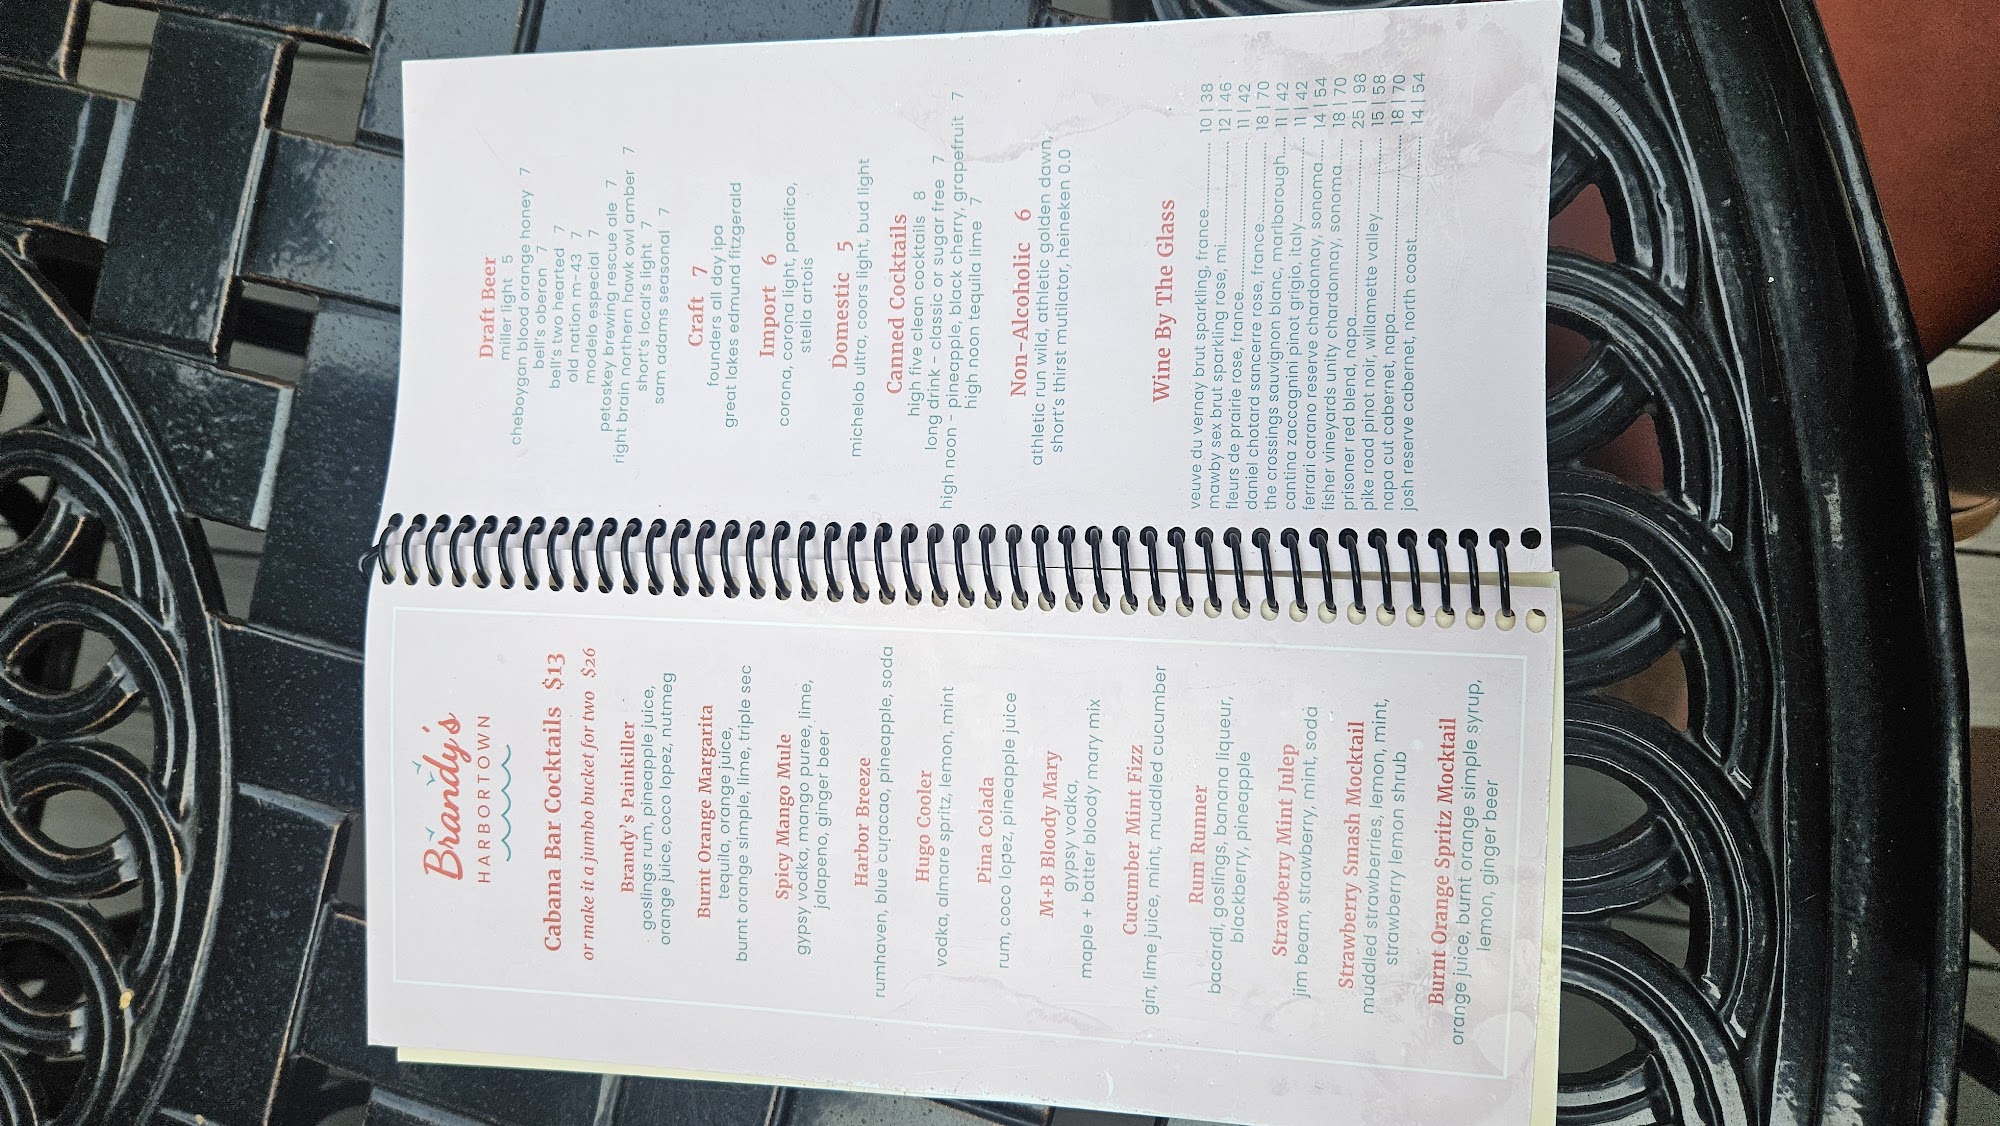 Brandy's
HARBORTOWN
Cabana Bar Cocktails $13
or make it a jumbo bucket for two $26
Brandy's Painkiller
goslings rum, pineapple juice,
orange juice, coco lopez, nutmeg
Burnt Orange Margarita
tequila, orange juice,
burnt orange simple, lime, triple sec
Spicy Mango Mule
gypsy vodka, mango puree, lime,
jalapeno, ginger beer
Harbor Breeze
rumhaven, blue curacao, pineapple, soda
Hugo Cooler
vodka, almare spritz, lemon, mint
Pina Colada
rum, coco lopez, pineapple juice
M+B Bloody Mary
gypsy vodka,
maple + batter bloody mary mix
Cucumber Mint Fizz
gin, lime juice, mint, muddled cucumber
Rum Runner
bacardi, goslings, banana liqueur,
blackberry, pineapple
Strawberry Mint Julep
jim beam, strawberry, mint, soda
Strawberry Smash Mocktail
muddled strawberries, lemon, mint,
strawberry lemon shrub
Burnt Orange Spritz Mocktail
orange juice, burnt orange simple syrup,
lemon, ginger beer
Draft Beer
miller light 5
cheboygan blood orange honey 7
bell's oberon 7
bell's two hearted 7
old nation m-43 7
modelo especial 7
petoskey brewing rescue ale 7
right brain northern hawk owl amber 7
short's local's light 7
sam adams seasonal 7
Craft 7
founders all day ipa
great lakes edmund fitzgerald
Import 6
corona, corona light, pacifico,
stella artois
Domestic 5
michelob ultra, coors light, bud light
Canned Cocktails
high five clean cocktails 8
long drink - classic or sugar free 7
high noon - pineapple, black cherry, grapefruit 7
high noon tequila lime 7
Non-Alcoholic 6
athletic run wild, athletic golden dawn,
short's thirst mutilator, heineken 0.0
Wine By The Glass
veuve du vernay brut sparkling, france 10 | 38
mawby sex brut sparkling rose, mi 12 | 46
fleurs de prairie rose, france 11 | 42
daniel chotard sancerre rose, france 18 | 70
the crossings sauvignon blanc, marlborough 11 | 42
cantina zaccagnini pinot grigio, italy 11 | 42
ferrari carano reserve chardonnay, sonoma 14 | 54
fisher vineyards unity chardonnay, sonoma 18 | 70
prisoner red blend, napa 25 | 98
pike road pinot noir, willamette valley 15 | 58
napa cut cabernet, napa 18 | 70
josh reserve cabernet, north coast 14 | 54